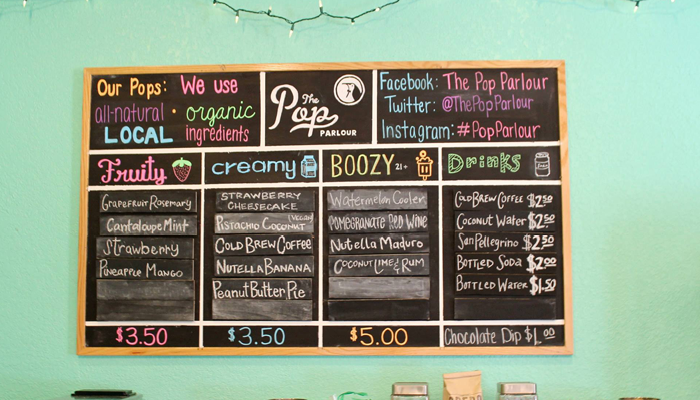 Our Pops: We use
all-natural • organic
LOCAL ingredients
The
Pop
PARLOUR
Facebook: The Pop Parlour
Twitter: @ThePopParlour
Instagram: #PopParlour
Fruity
Grapefruit Rosemary
Cantaloupe Mint
Strawberry
Pineapple Mango
$3.50
creamy
STRAWBERRY
CHEESECAKE
Pistachio Coconut (VEGAN)
COLD BREW COFFEE
NUTELLA BANANA
Peanut Butter Pie
$3.50
BOOZY 21+
Watermelon Cooler
POMEGRANATE RED WINE
Nutella Maduro
COCONUT LIME & RUM
$5.00
Drinks
COLD BREW COFFEE $2.50
Coconut Water $2.50
San Pellegrino $2.50
BOTTLED SODA $2.00
BOTTLED WATER $1.50
Chocolate Dip $1.00